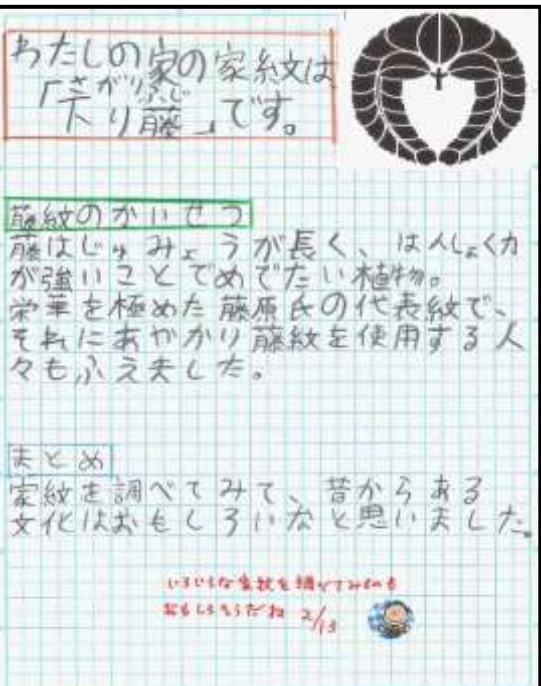 わたしの家の家紋は
「下がり藤」です。
藤紋のかいせつ
藤はじゅみょうが長く、はんしょく力
が強いことでめでたい植物。
栄華を極めた藤原氏の代表紋で、
それにあやかり藤紋を使用する人
々もふえました。
まとめ
家紋を調べてみて、昔からある
文化はおもしろいなと思いました。
いろいろな家紋を調べてみるのも
おもしろそうだね 2/13